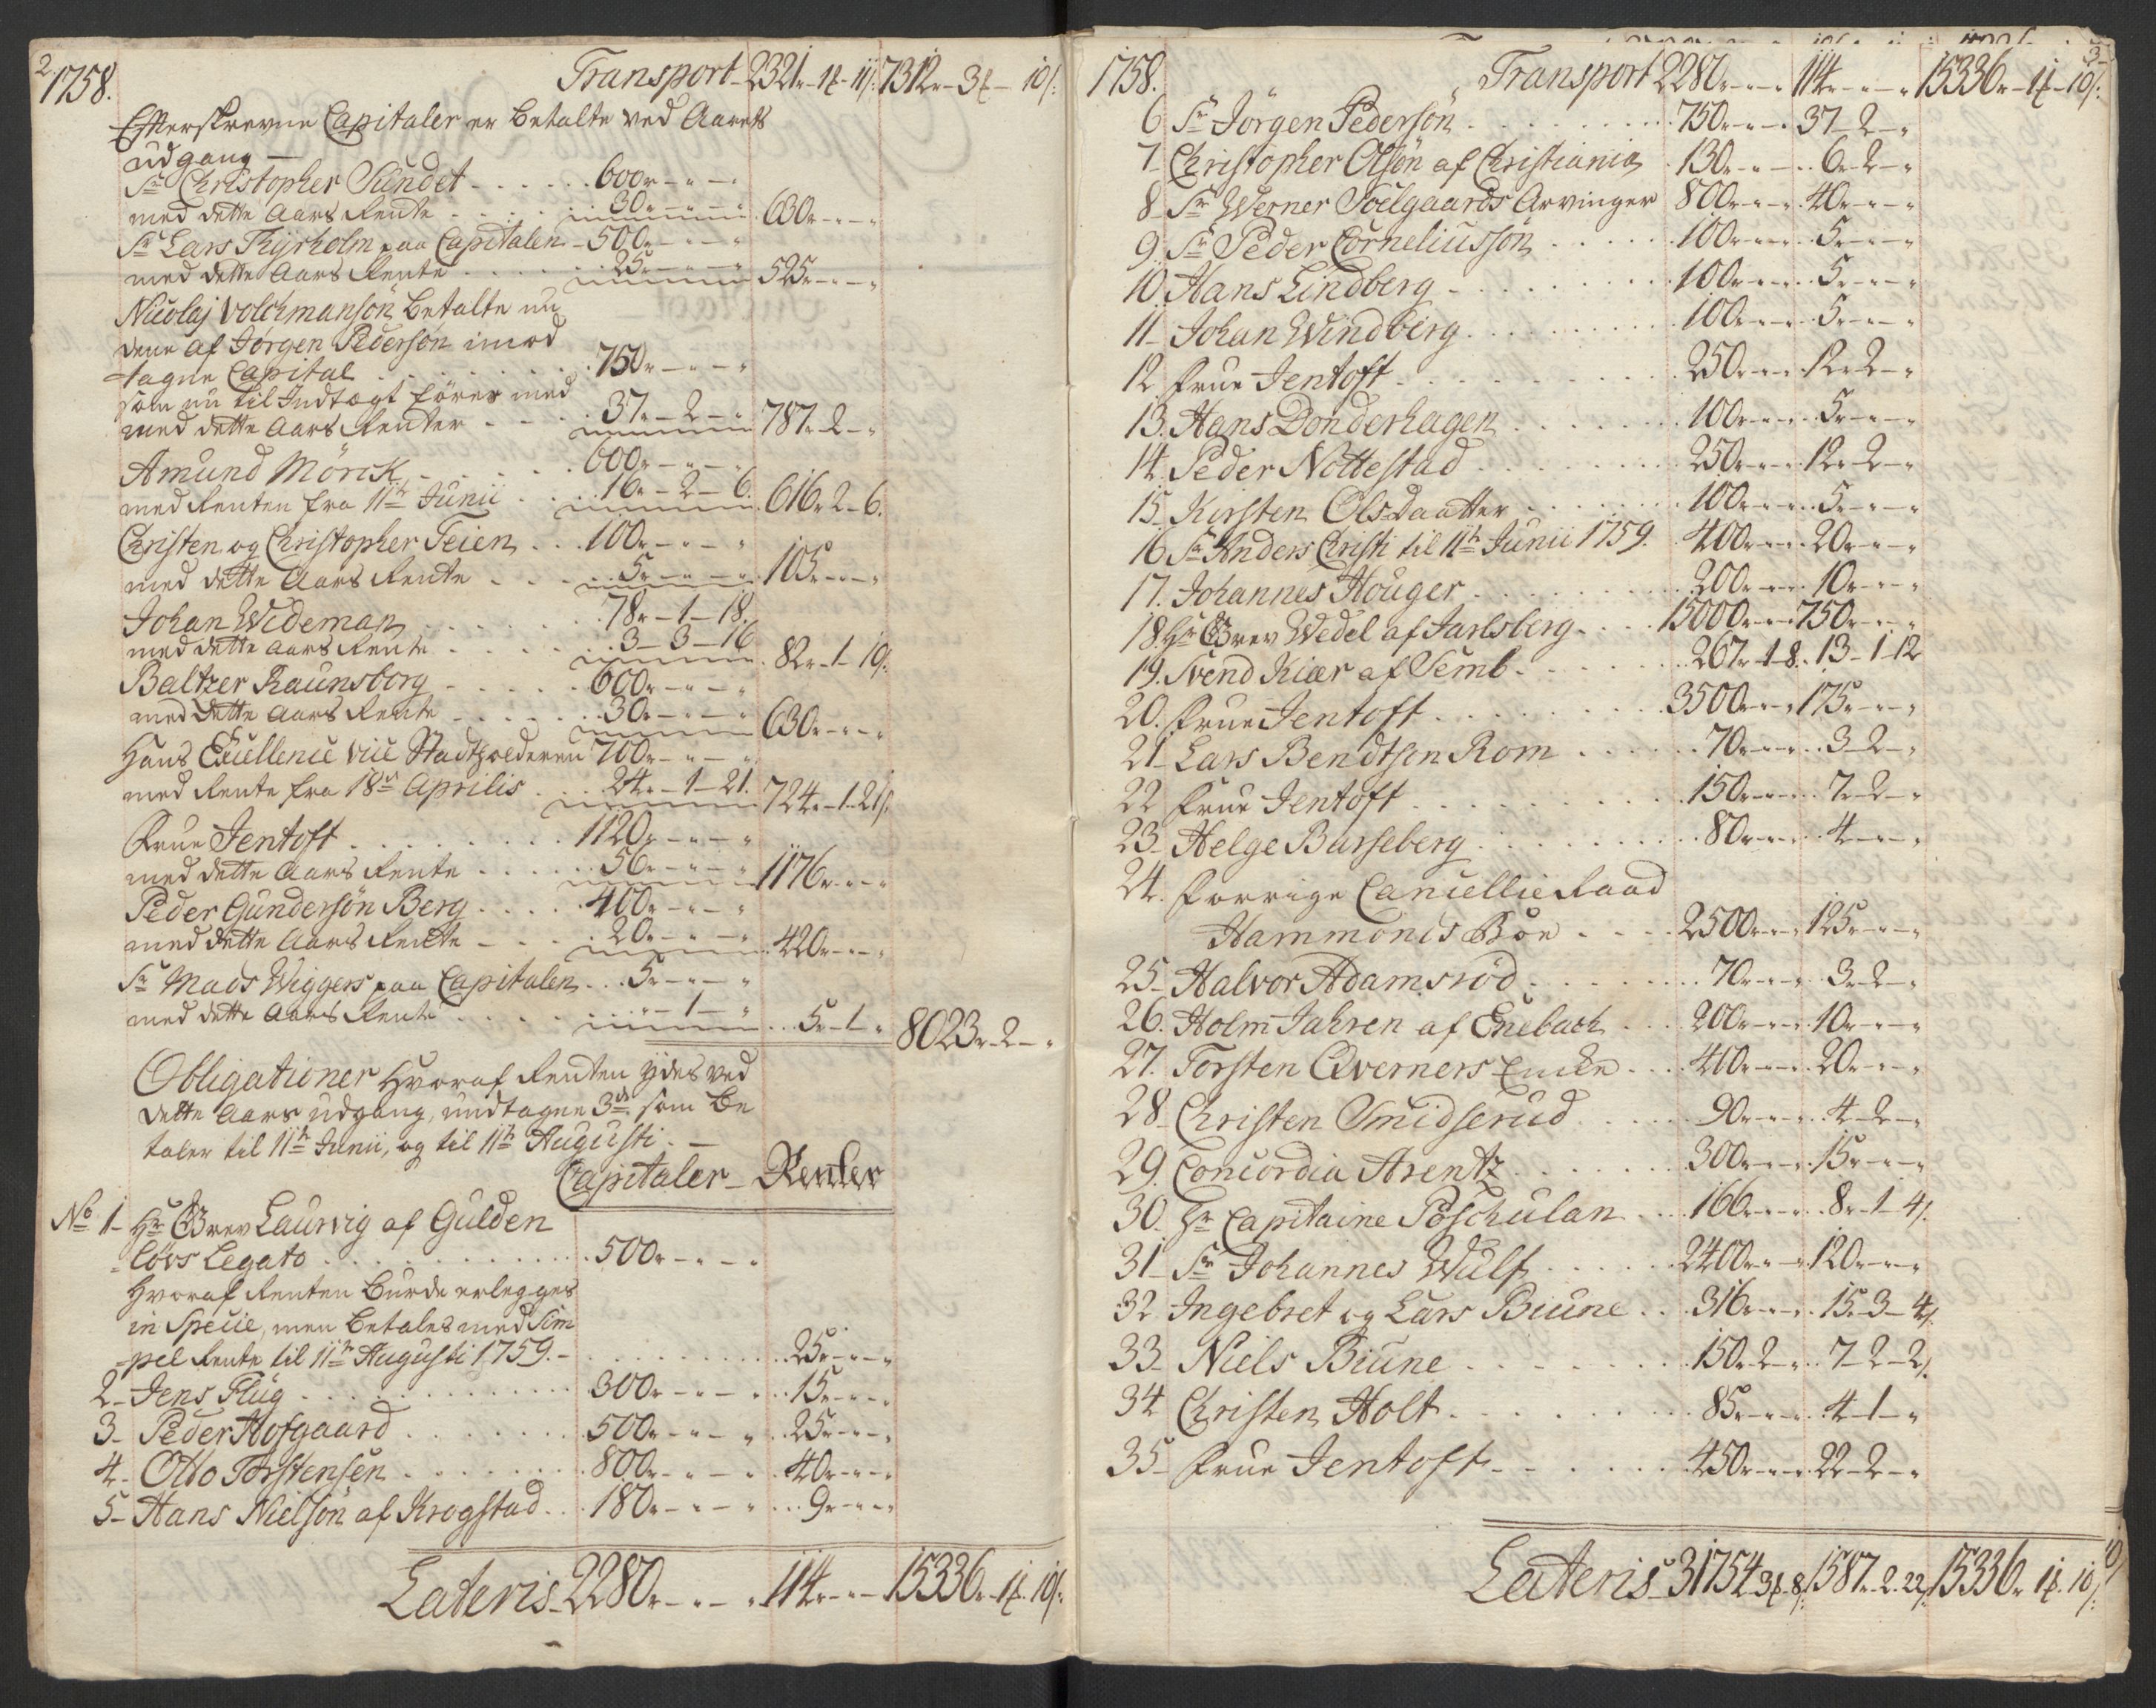 2
1758.
Transport - 2321r - 1f - 11s: 7312r - 3f - 10s:
Efterskrevne Capitaler er betalte ved Aarets
udgang -
Sr Christopher Sundet - . . . . . 600r - " - "
med dette Aars Rente . . . . . 30r - " - " 630r - " - "
Sr Lars Thyrholm paa Capitalen - 500r - " - "
med dette Aars Rente . . . . . 25r - " - " 525r - " - "
Nicolaj Volchmansøn betalte nu
dene af Jørgen Pedersøn imod
-tagne Capital . . . . . 750r - " - "
som nu til Indtægt föres med
med dette Aars Renter . . . 37r - 2 - " 787r - 2 - "
Amund Mörck - . . . . . 600r - " - "
med Renten fra 11te Junii . . . 16r - 2 - 6. 616r - 2 - 6.
Christen og Christopher Teien . . . 100r - " - "
med dette Aars Rente . . . . . 5r - " - " 105r - " - "
Johan Wideman . . . . . 78r - 1 - 18.
med dette Aars Rente . . . . . 3 - 3 - 16 82r - 1 - 10s.
Baltzer Raunsborg - . . . . . 600r - " - "
med dette Aars Rente . . . . . 30r - " - " 630r - " - "
Hans Excellence vice Stadtholderen 700r - " - "
med Rente fra 18de Aprilis . . . 24r - 1 - 21. 724r - 1 - 21s.
Frue Jentoft . . . . . 1120r - " - "
med dette Aars Rente . . . . . 56r - " - " 1176r - " - "
Peder Gundersön Berg . . . . . 400r - " - "
med dette Aars Rente - . . . . 20r - " - " 420r - " - "
Sr Mads Wiggers paa Capitalen . . . 5r - " - "
med dette Aars Rente . . . . . " - 1 - " 5r - 1 - " 8023r - 2 - "
Obligationer hvoraf Renten ydes ved
dette Aars udgang, undtagne 3de som be
taler til 11te Junii, og til 11te Augusti. -
Capitaler - Renter
No 1 - Hr Grev Laurvig af Gülden
-lövs Legato . . . . . 500r - " - "
hvoraf Renten burde erlegges
in Specie, men betales med Sim
-pel Rente til 11te Augusti 1759. - . . . . . 25r - " - "
2 - Jens Flüg . . . . . 300r - " - " 15r - " - "
3 - Peder Hofgaard . . . . . 500r - " - " 25r - " - "
4 - Otto Torstensen . . . . . 800r - " - " 40r - " - "
5 - Hans Nielsön af Krogstad . . 180r - " - " 9r - " - "
Lateris - 2280r - " - " 114r - " - " 15336r - 1f - 10s:
3
1758.
Transport 2280r - " - " 114r - " - " 15336r - 1f - 10s:
6 Sr Jörgen Pedersön . . . . . 750r - " - " 37 - 2 - "
7 - Christopher Olsön af Christiania 130r - " - " 6r - 2 - "
8 - Sr Werner Soelgaards Arvinger 800r - " - " 40r - " - "
9 Sr Peder Corneliussön . . . . . 100r - " - " 5r - " - "
10 Hans Lindberg - . . . . . 100r - " - " 5r - " - "
11 - Johan Windberg . . . . . 100r - " - " 5r - " - "
12 Frue Jentoft . . . . . 250r - " - " 12r - 2 - "
13. Hans Donderhagen . . . . . 100r - " - " 5r - " - "
14. Peder Nottestad . . . . . 250r - " - " 12r - 2 - "
15. Kirsten Olsdaatter . . . . . 100r - " - " 5r - " - "
16 Sr Anders Christi til 11te Junii 1759. 400r - " - " 20r - " - "
17. Johannes Houger . . . . . 200r - " - " 10r - " - "
18. Hr Grev Wedel af Jarlsberg . . . 15000r - " - " 750r - " - "
19. Svend Kiær af Semb . . . . . 267r - 1 - 8. 13 - 1 - 12
20. Frue Jentoft . . . . . 3500r - " - " 175r - " - "
21 - Lars Bendtsen Rom . . . . . 70r - " - " 3 - 2 - "
22 Frue Jentoft . . . . . 150r - " - " 7 - 2 - "
23. Helge Basseberg . . . . . 80r - " - " 4 - " - "
24. Forrige Cancellie Raad
Hammonds Böe . . . . 2500r - " - " 125r - " - "
25 - Halvor Adamsröd . . . . . 70r - " - " 3 - 2 - "
26. Holm Jahren af Enebach . . . 200r - " - " 10r - " - "
27. Torsten Qverners Encke . . . . 400r - " - " 20r - " - "
28 - Christen Smidserud . . . . . 90r - " - " 4 - 2 - "
29. Concordia Arentz . . . . . 300r - " - " 15r - " - "
30. Hr Capitaine Poschulan . . . 166r - " - " 8r - 1 - 4s.
31 - Sr Johannes Wulf . . . . . 2400r - " - " 120r - " - "
32 Ingebret og Lars Biune . . . 316r - " - " 15 - 3 - 4s.
33 - Niels Biune . . . . . 150r - 2 - " 7 - 2 - 2s.
34 Christen Holt . . . . . 85r - " - " 4 - 1 - "
35 - Frue Jentoft - . . . . . 450r - " - " 22 - 2 - "
Lateris - 31754 - 3f - 8s: 1587r - 2 - 22s 15336r - 1f - 10s: